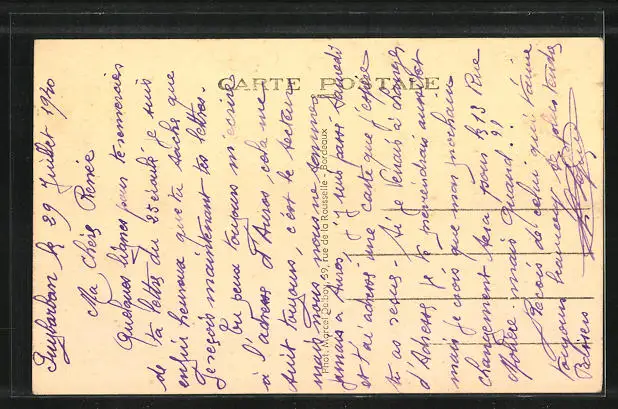 CARTE POSTALE
Phot. Marcel Delboy, 59, rue de la Rousselle - Bordeaux
le 29 Juillet 1940
Ma Chère Renée
Quelques lignes pour te remercier
de ta lettre du 25 écoulé je suis
enfin heureux que tu saches que
Je reçois maintenant tes lettres.
Tu peux toujours m'écrire
à l'adresse d'Auros, cela me
suit toujours, c'est le secteur
mais nous nous ne sommes
jamais à Auros, j'y suis passé Samedi
et t'ai adressé une carte que j'espère
tu as reçue - Si je venais à changer
d'Adresse je te préviendrais aussitôt
mais je crois que mon prochain
changement sera pour le 13 Rue
Molière mais quand ??
Reçois de celui qui t'aime
toujours tendres
Baisers